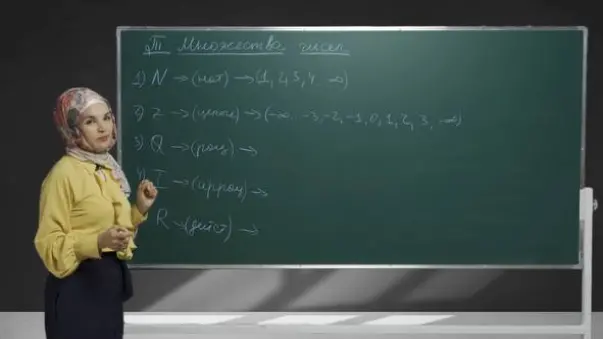 Множества чисел
1) N → (нат) → (1, 2, 3, 4. ∞)
2) Z → (целые) → (-∞. -3, -2, -1, 0, 1, 2, 3, ∞)
3) Q → (рац) →
4) I → (иррац) →
R → (дейст) →